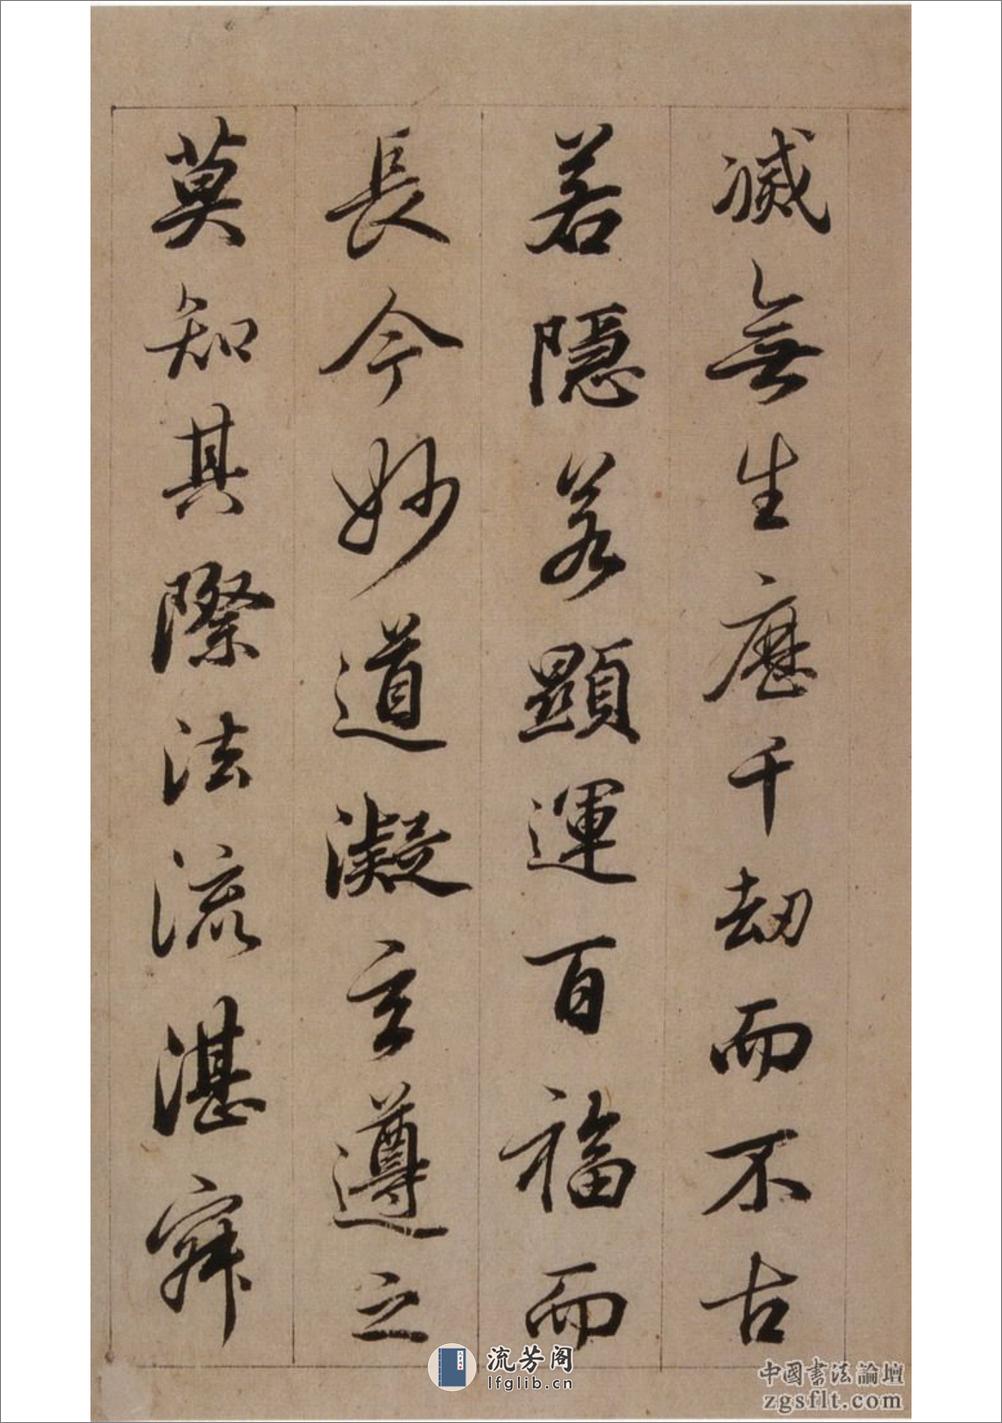 滅無生歷千劫而不古
若隱若顯運百福而
長今妙道凝玄遵之
莫知其際法流湛寂
流芳阁
lfglib.cn
中國書法論壇
zgsflt.com